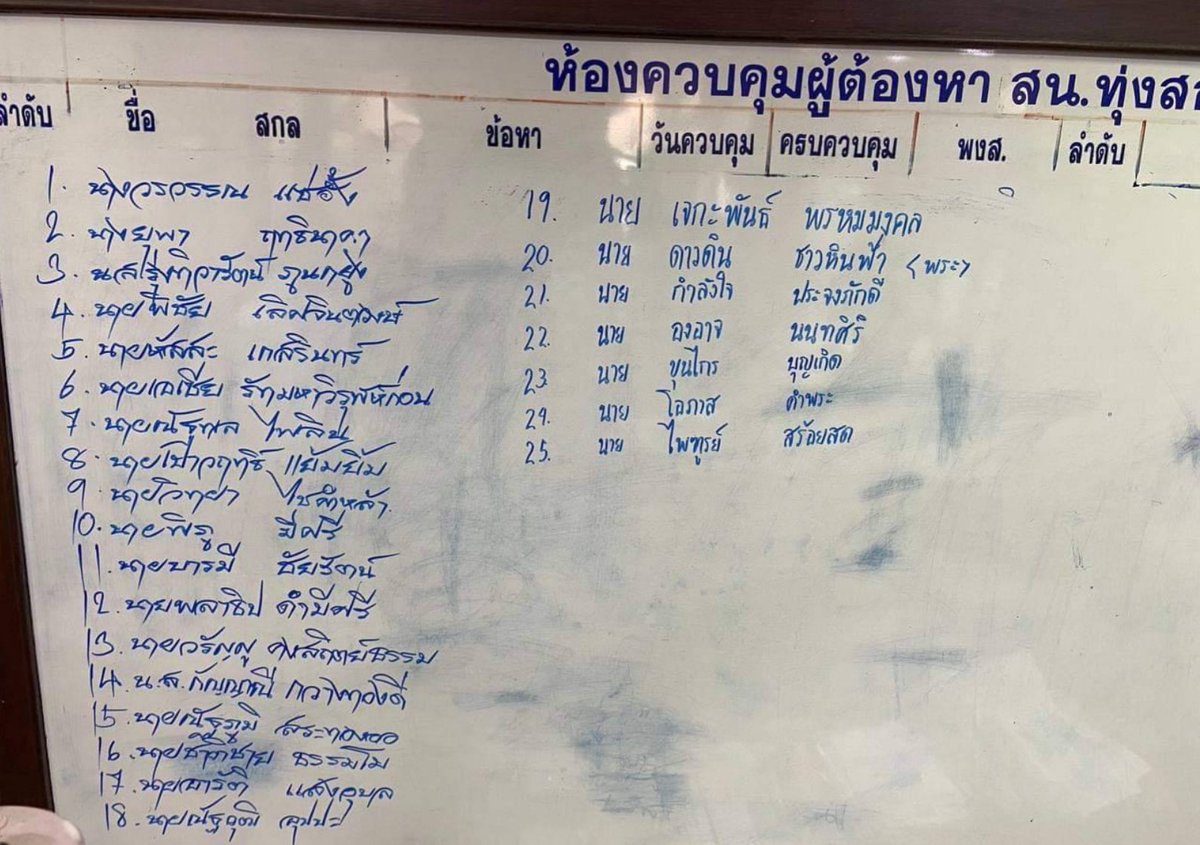 ห้องควบคุมผู้ต้องหา สน.ทุ่งส
ลำดับ ชื่อ สกล ข้อหา วันควบคุม ครบควบคุม พงส. ลำดับ
1. นางวรวรรณ แซ่อั้ง
2. นางยุพา
3. น.ส.
4. นายพีชัย เลิศจินตวงษ์
5. นายหัสสะ เกสรินทร์
6. นายเอเชีย
7. นายณัฐพล ไพลิน
8. นายเปาวฤทธิ์ แย้มยิ้ม
9. นายวิทยา ไชคำหล้า
10. นาย มีศรี
11. นายบารมี ชัยรัตน์
12. นายพลาธิป ดำมีศรี
13. นายวรัญญู คงสถิตย์ธรรม
14. น.ส.กัญญาณี กวางทองดี
15. นายณัฐภูมิ สระทองออ
16. นายชาติชาย ธรรมโม
17. นายอารัติ แสงอุบล
18. นายณัฐวุฒิ อุปปะ
19. นาย เจกะพันธ์ พรหมมงคล
20. นาย ดาวดิน ชาวหินฟ้า (พระ)
21. นาย กำลังใจ ประจงภักดี
22. นาย องอาจ นนทศิริ
23. นาย ขุนไกร บุญเกิด
24. นาย โอภาส คำพระ
25. นาย ไพฑูรย์ สร้อยสด